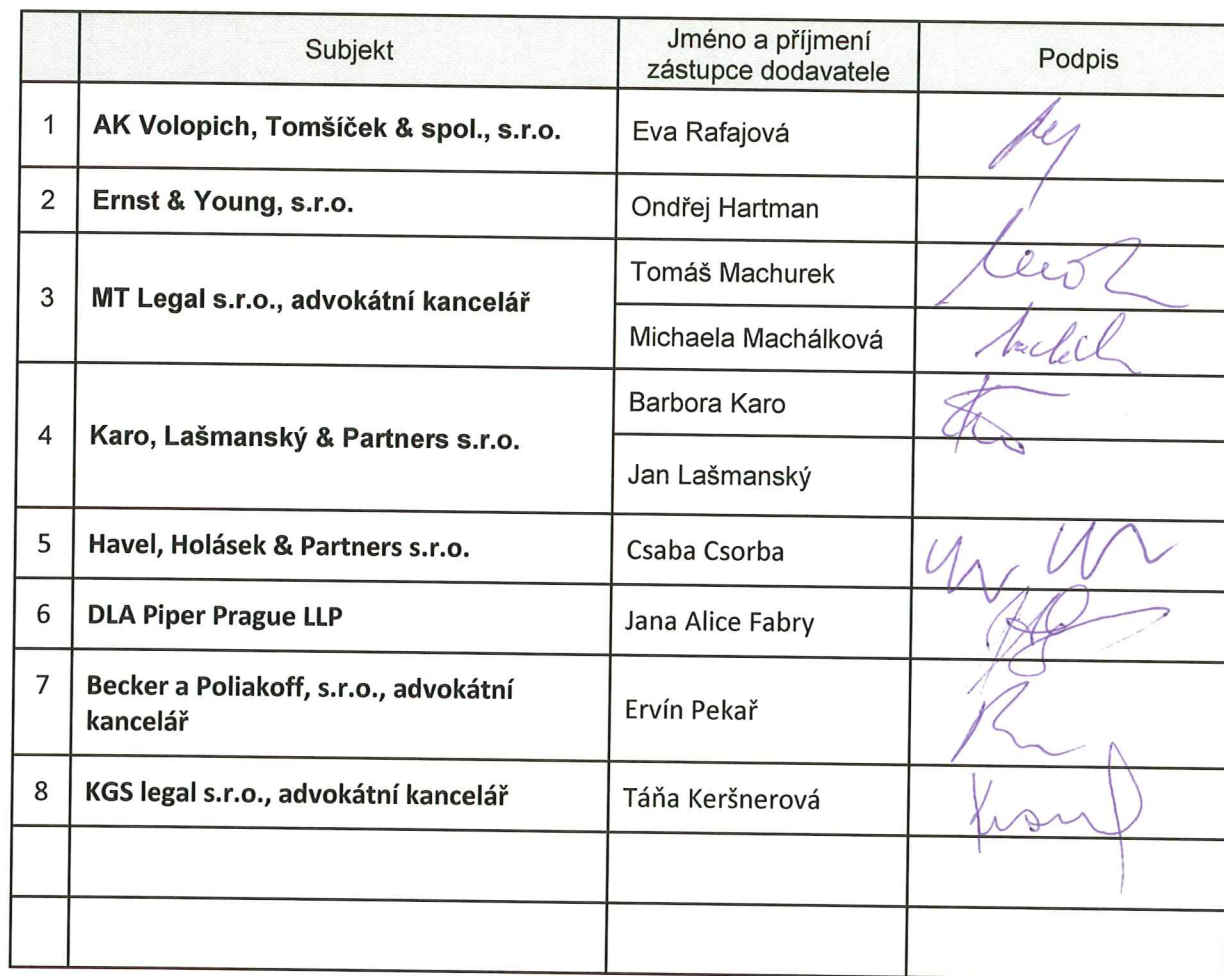 Subjekt
Jméno a příjmení
zástupce dodavatele
Podpis
1 AK Volopich, Tomšíček & spol., s.r.o. Eva Rafajová
2 Ernst & Young, s.r.o. Ondřej Hartman
3 MT Legal s.r.o., advokátní kancelář Tomáš Machurek
Michaela Machálková
4 Karo, Lašmanský & Partners s.r.o. Barbora Karo
Jan Lašmanský
5 Havel, Holásek & Partners s.r.o. Csaba Csorba
6 DLA Piper Prague LLP Jana Alice Fabry
7 Becker a Poliakoff, s.r.o., advokátní
kancelář Ervín Pekař
8 KGS legal s.r.o., advokátní kancelář Táňa Keršnerová